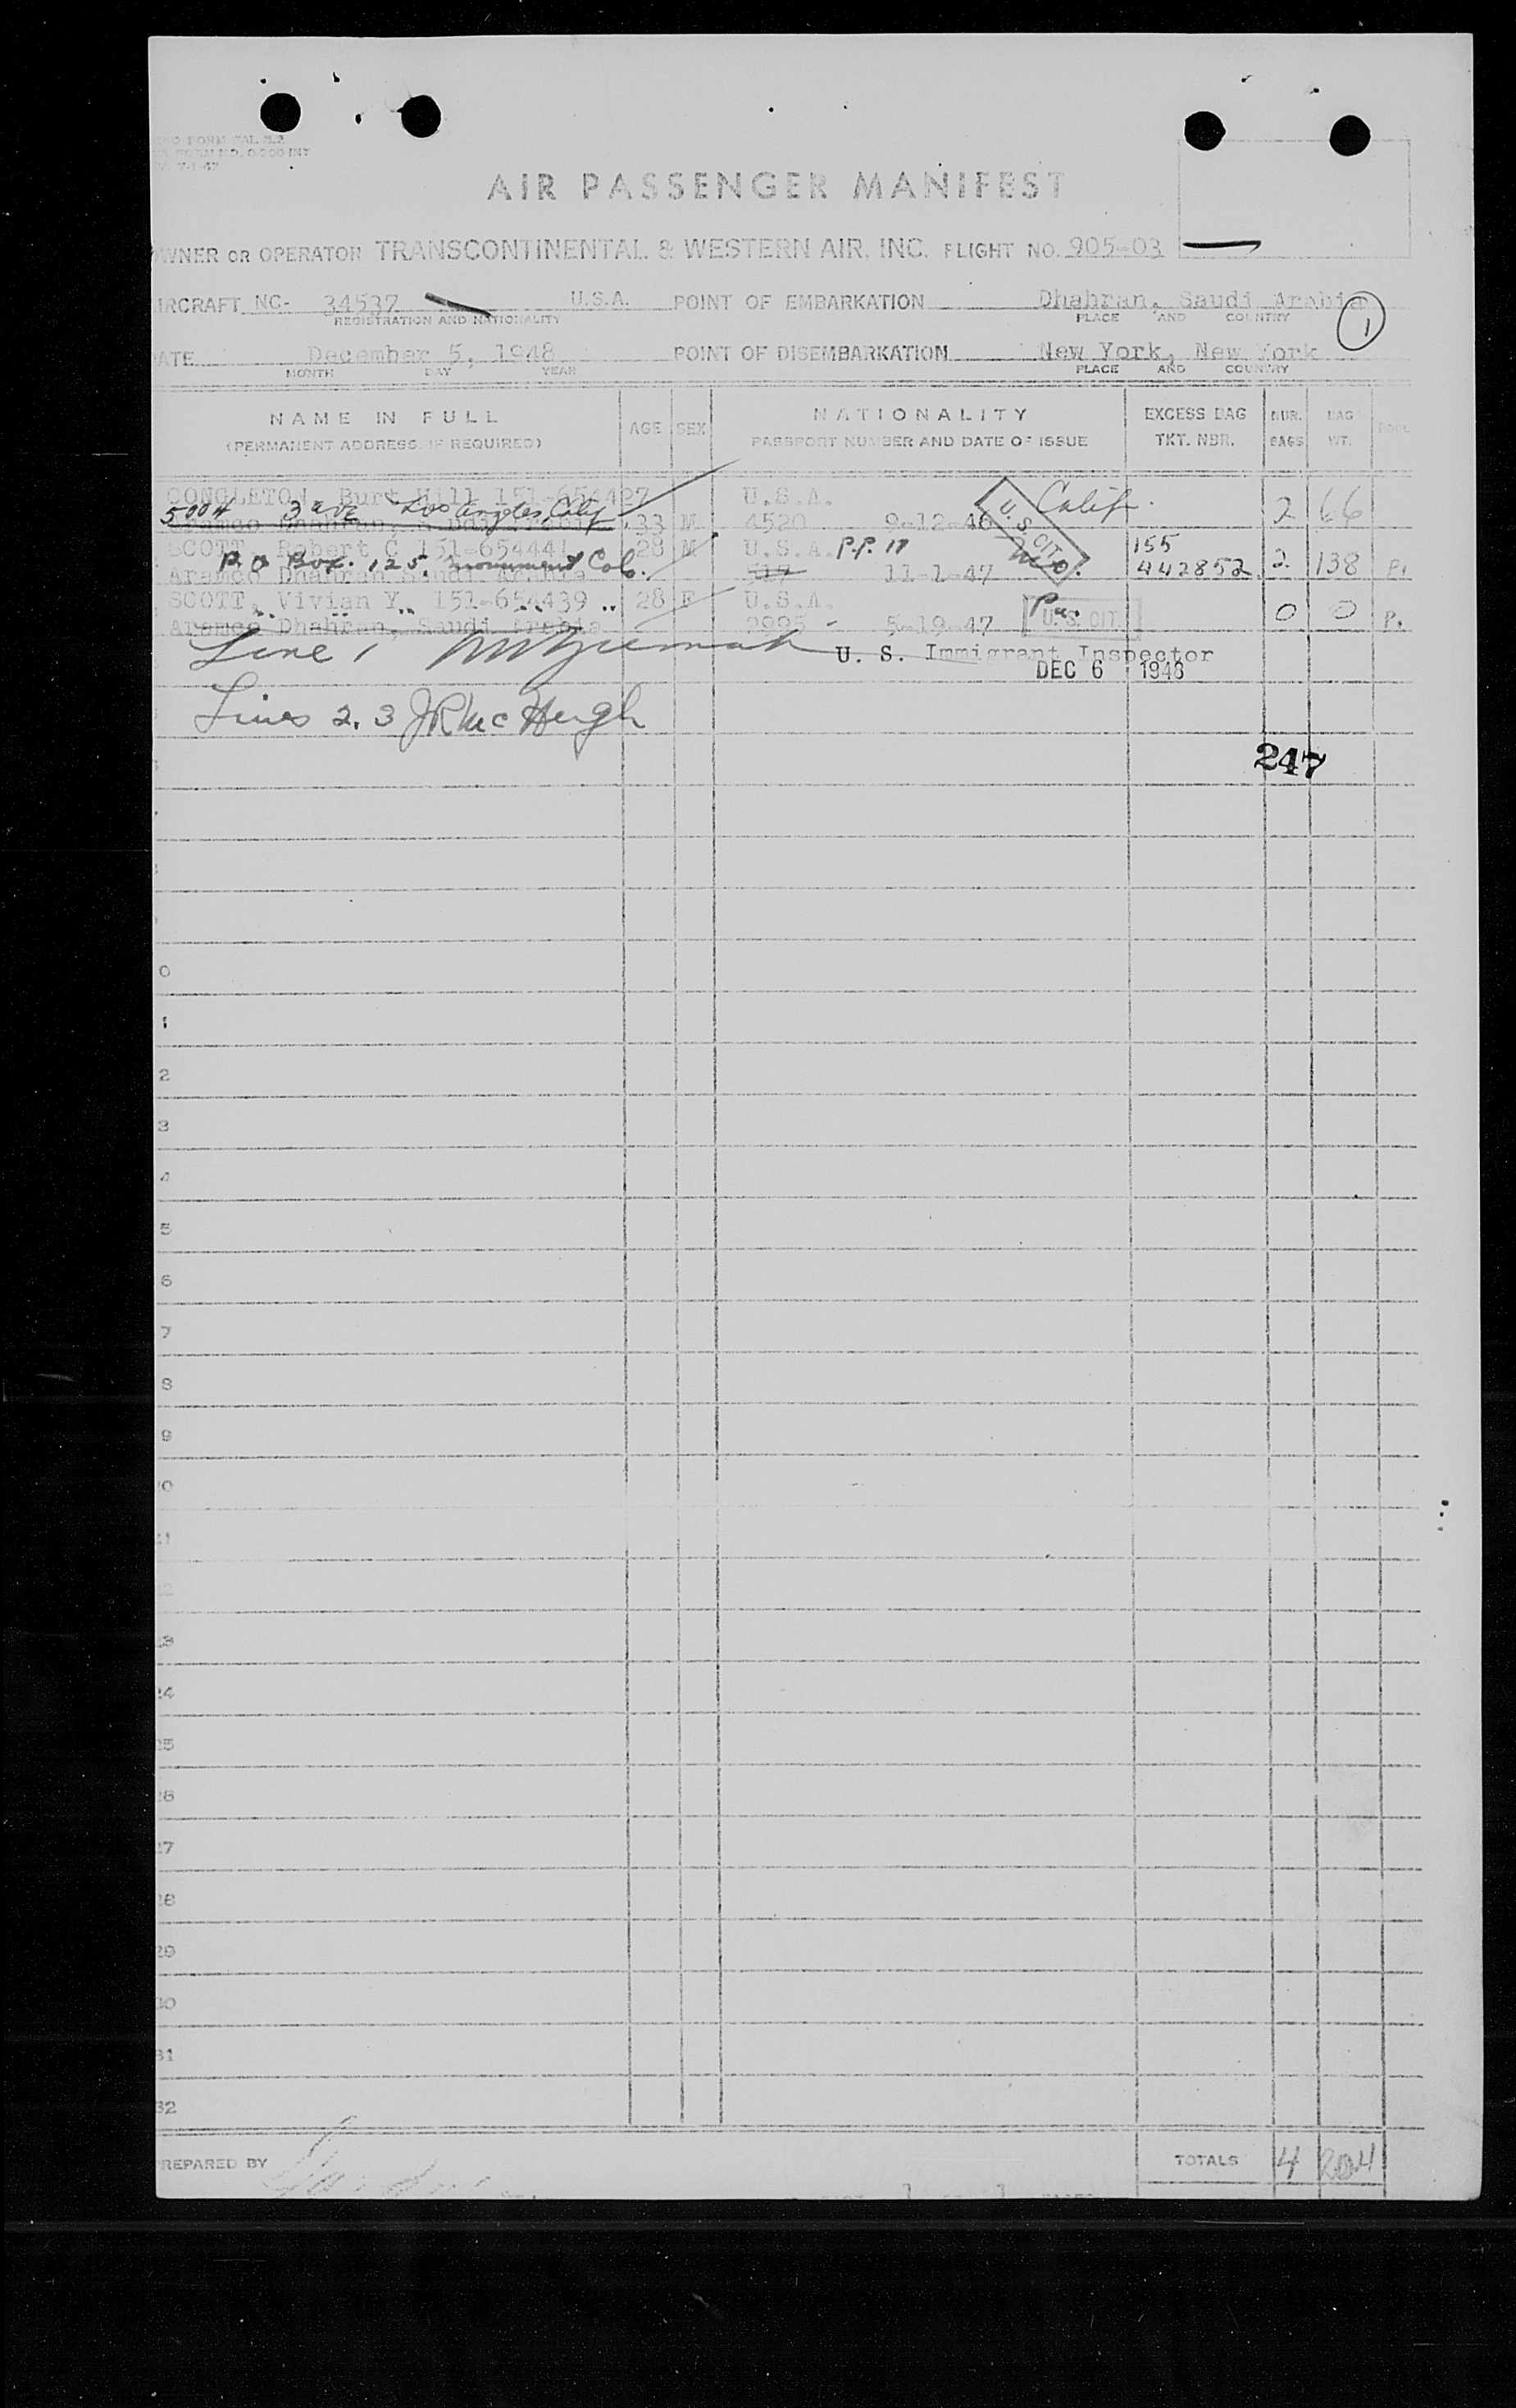 AIR PASSENGER MANIFEST
OWNER OR OPERATOR TRANSCONTINENTAL & WESTERN AIR, INC. FLIGHT NO. 905-03
AIRCRAFT NC- 34537 U.S.A. POINT OF EMBARKATION Dhahran, Saudi Arabia
REGISTRATION AND NATIONALITY PLACE AND COUNTRY
1
DATE December 5, 1948 POINT OF DISEMBARKATION New York, New York
MONTH DAY YEAR PLACE AND COUNTRY
NAME IN FULL AGE SEX NATIONALITY EXCESS BAG NUR. BAG
(PERMANENT ADDRESS IF REQUIRED) PASSPORT NUMBER AND DATE OF ISSUE TKT. NBR. BAGS WT.
CONGLETON, Burt Hill 151-654427 U.S.A. Calif.
5004 3 ave Los Angeles Calif
Aramco Dhahran, Saudi Arabia 33 M 4520 9-12-46 U. S. CIT. 2 66
SCOTT, Robert C 151-654441 28 M U.S.A. P.P. 17 155
P O Box. 125, monument Colo.
Aramco Dhahran Saudi Arabia 11-1-47 Mo. 442852 2 138 P.
SCOTT, Vivian Y. 151-654439 28 F U.S.A. Pa.
Aramco Dhahran, Saudi Arabia 2995 - 5-19-47 U. S. CIT. 0 0 P.
Line 1 U. S. Immigrant Inspector
DEC 6 1948
Lines 2, 3 JR McHugh
247
0
1
2
3
4
5
6
7
8
9
20
21
22
23
24
25
26
27
28
29
30
31
32
PREPARED BY TOTALS 4 204